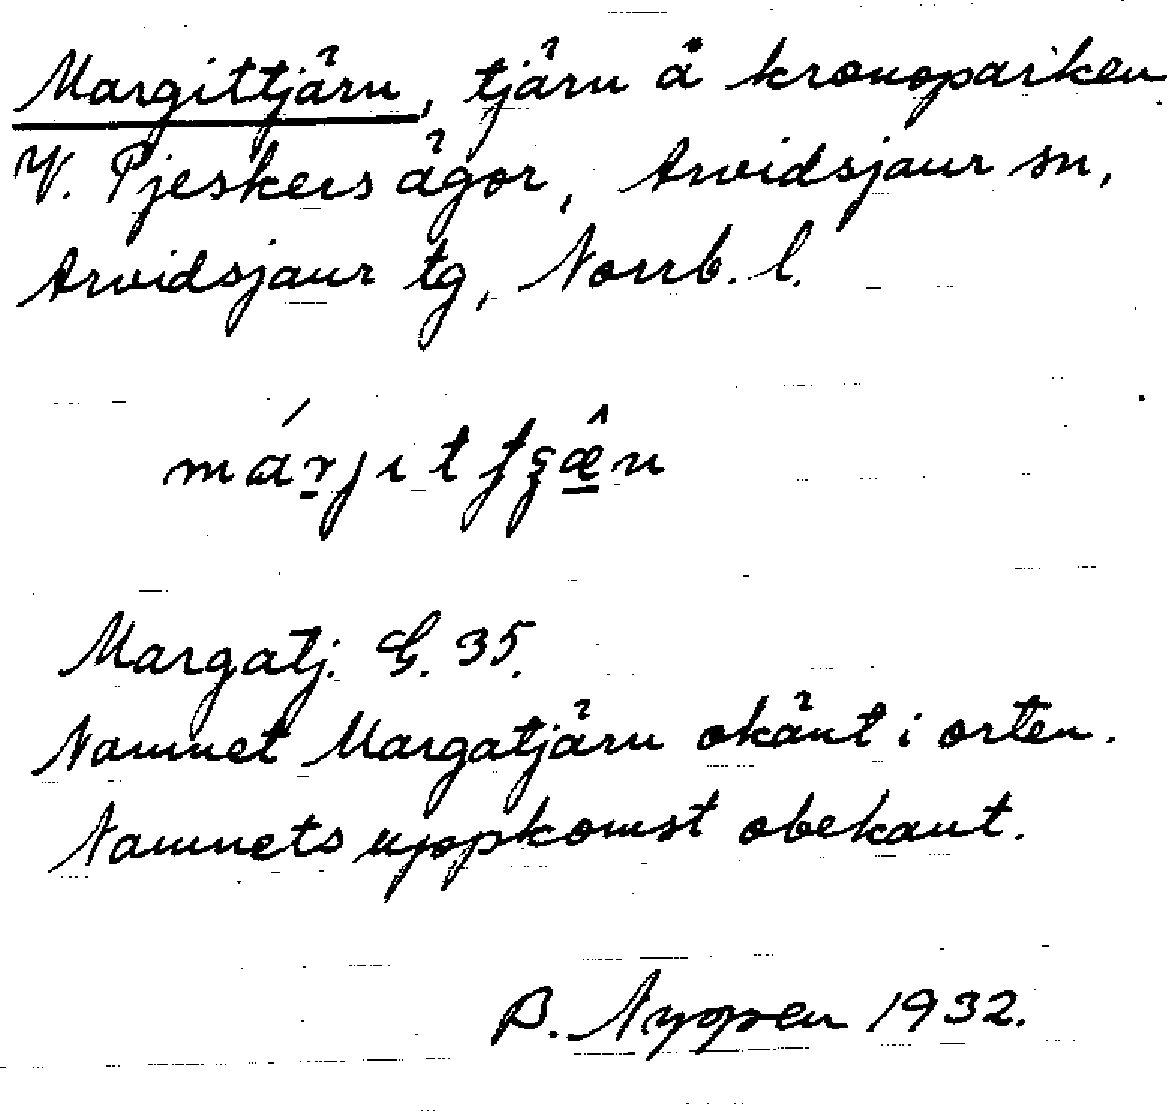 Margittjärn, tjärn å kronoparken
V. Pjeskers ägor, Arvidsjaur sn,
Arvidsjaur tg, Norrb. l.
márjit tʃæ̂n
Margatj. G. 35.
Namnet Margatjärn okänt i orten.
Namnets uppkomst obekant.
B. Nyppen 1932.